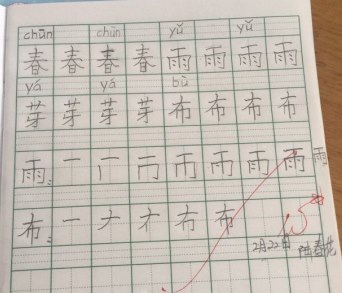 chūn chūn yǔ yǔ
春 春 春 春 雨 雨 雨 雨
yá yá bù
芽 芽 芽 芽 布 布 布 布
雨: 一 冂 雨 雨 雨 雨 雨
布: 一 ナ 才 布 布
2月22日